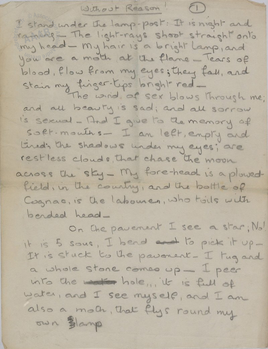 Without Reason 1
I stand under the lamp-post. It is night and
raining — The light-rays shoot straight onto
my head — My hair is a bright lamp, and
you are a moth at the flame — Tears of
blood, flow from my eyes; they fall, and
stain my finger-tips bright red —
The wind of sex blows through me,
and all beauty is sad; and all sorrow
is sexual — And I give to the memory of
soft-mouths — I am left, empty and
tired; the shadows under my eyes; are
restless clouds that chase the moon
across the sky — My fore-head is a plowed
field, in the country; and the bottle of
Cognac, is the labourer, who toils with
bended head —
On the pavement I see a star; No!
it is 5 sous, I bend to pick it up —
It is stuck to the pavement — I tug and
a whole stone comes up — I peer
into the hole... it is full of
water, and I see myself, and I am
also a moth, that flys round my
own lamp